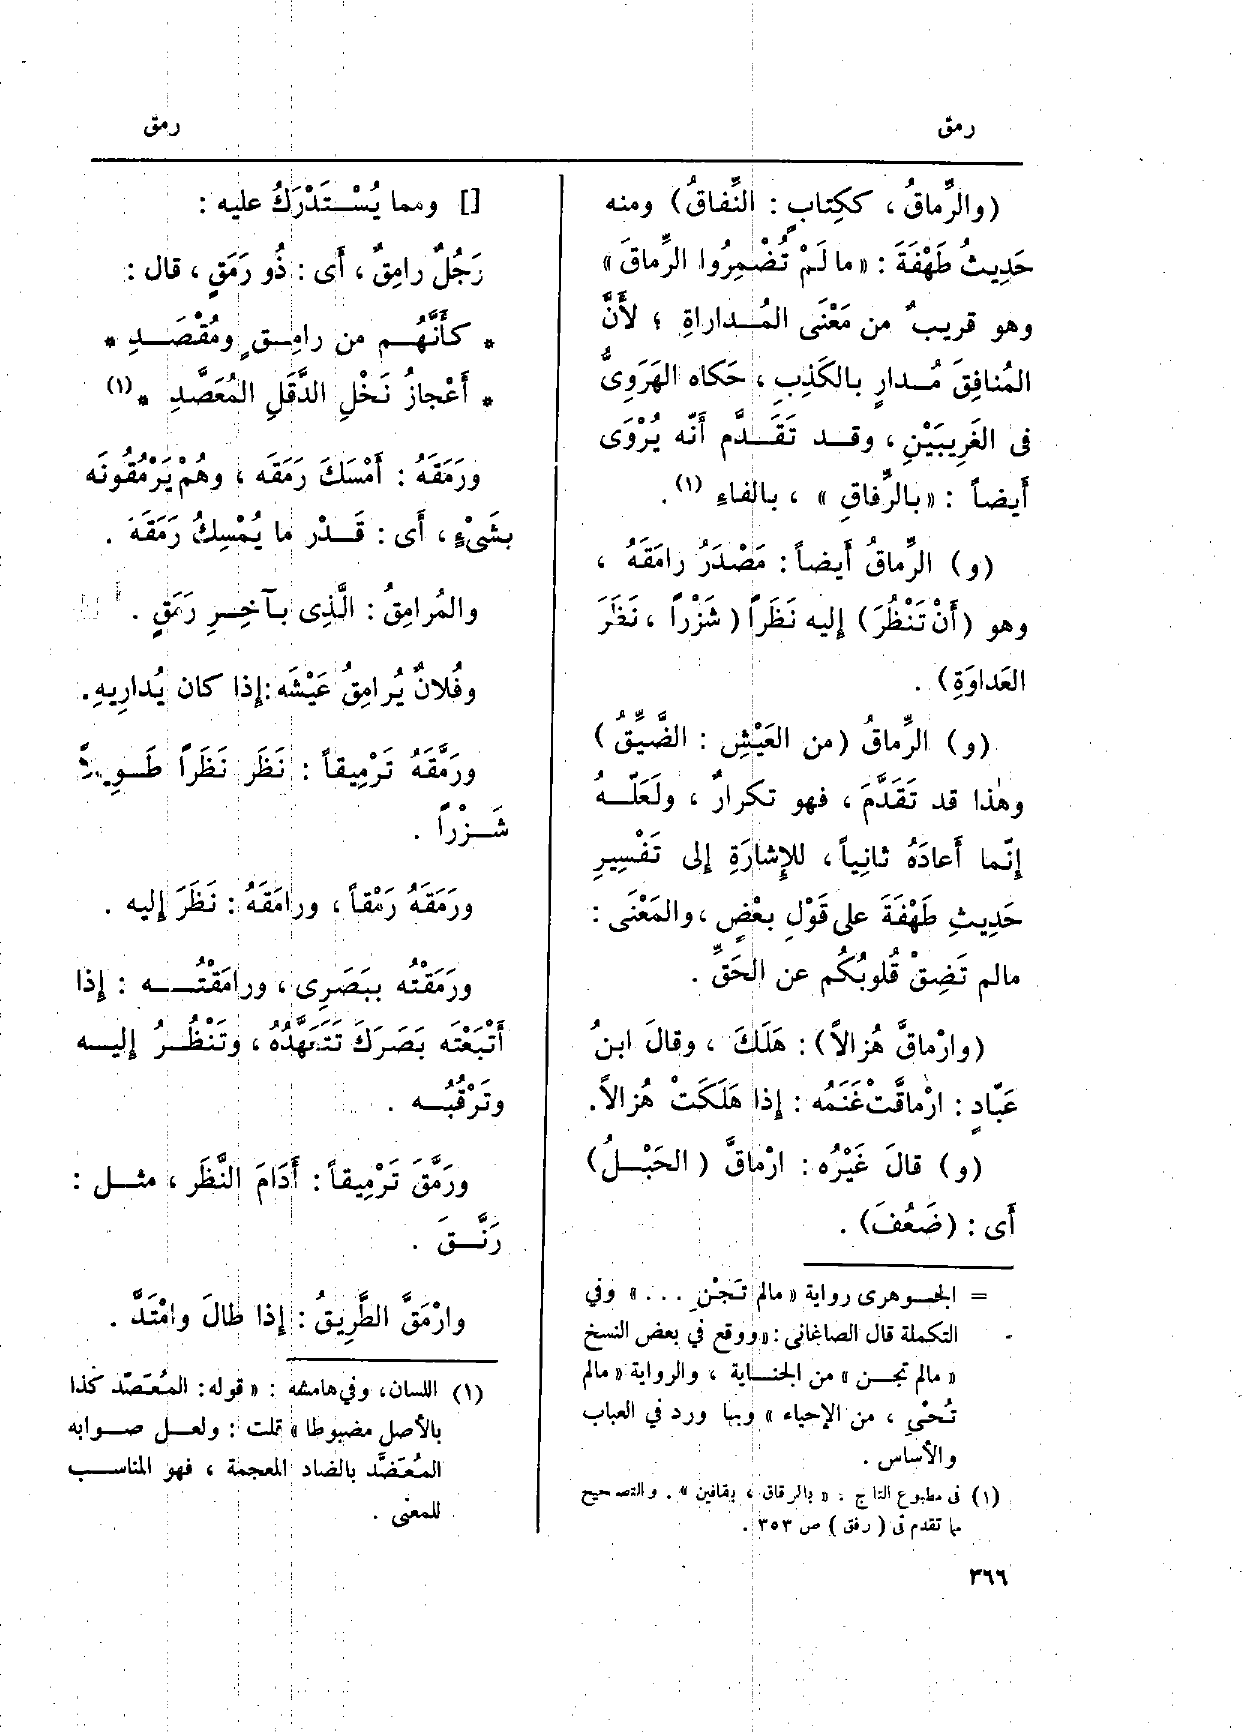 رمق
رمق
(والرِّماقُ ، ككِتابٍ : النِّفاقُ) ومنه
حَدِيثُ طَهْفَةَ : «ما لَمْ تُضْمِرُوا الرِّماقَ»
وهو قريبٌ من مَعْنَى المُـداراةِ ؛ لأَنَّ
المُنافِقَ مُـدارٍ بالكَذِبِ ، حَكاه الهَرَوِىُّ
فى الغَرِيبَيْنِ ، وقـد تَقَـدَّم أَنّه يُرْوَى
أَيضاً : «بالرِّفاقِ» ، بالفاءِ (١) .
(و) الرِّماقُ أَيضاً : مَصْدَرُ رامَقَهُ ،
وهو (أَنْ تَنْظُرَ) إليه نَظَراً (شَزْراً ، نَظَرَ
العَداوَةِ) .
(و) الرِّماقُ (من العَيْشِ : الضَّيِّقُ)
وهٰذا قد تَقَدَّمَ ، فهو تكرارٌ ، ولَعَلّـهُ
إنّما أَعادَهُ ثانِياً ، للإِشارَةِ إلى تَفْسِيرِ
حَدِيثِ طَهْفَةَ على قَوْلِ بعْضٍ ، والمَعْنَى :
مالم تَضِقْ قُلوبُكُم عن الحَقِّ .
(وارْماقَّ هُزالاً) : هَلَكَ ، وقالَ ابنُ
عَبّادٍ : ارْماقَّتْ غَنَمُه : إِذا هَلَكَتْ هُزالاً .
(و) قالَ غَيْرُه : ارْماقَّ (الحَبْـلُ)
أَى : (ضَعُفَ) .
= الجـوهرى رواية «مالم تَجْنِ ...» وفي
التكملة قال الصاغانى : «ووقع في بعض النسخ
«مالم تجـن» من الجنـاية ، والرواية «مالم
تُحْىِ ، من الإحياء» وبها ورد في العباب
والأساس .
(١) فى مطبوع التاج : «بالرقاق ، بقافين» . والتصحيح
مما تقدم فى (رفق) ص ٣٥٣ .
[] ومما يُسْـتَدْرَكُ عليه :
رَجُلٌ رامِقٌ ، أَى : ذُو رَمَقٍ ، قال :
* كأَنَّهُـم من رامِـقٍ ومُقْصَـدِ *
* أَعْجازُ نَخْلِ الدَّقَلِ المُعَصَّدِ *(١)
ورَمَقَهُ : أَمْسَكَ رَمَقَه ، وهُمْ يَرْمُقُونَه
بشَىْءٍ ، أَى : قَـدْر ما يُمْسِكُ رَمَقَهَ .
والمُرامِقُ : الَّذِى بـآخِـرِ رَمَقٍ .
وفُلانٌ يُرامِقُ عَيْشَه : إِذا كان يُدارِيهِ .
ورَمَّقَهُ تَرْمِيقاً : نَظَر نَظَراً طَـوِيلاً
شَـزْراً .
ورَمَقَهُ رَمْقاً ، ورامَقَهُ : نَظَرَ إِليه .
ورَمَقْتُه ببَصَرِى ، ورامَقْتُـه : إِذا
أَتْبَعْتَه بَصَرَكَ تَتَعَهَّدُهُ ، وتَنْظُـرُ إليـه
وتَرْقُبُـه .
ورَمَّقَ تَرْمِيقاً : أَدَامَ النَّظَر ، مثـل :
رَنَّـقَ .
وارْمَقَّ الطَّرِيقُ : إِذا طالَ وامْتَدَّ .
(١) اللسان، وفى هامشه : «قوله: المُعَصَّد كذا
بالأصل مضبوطا» قلت : ولعـل صـوابه
المُعَضَّد بالضاد المعجمة ، فهو المناسـب
للمعنى .
٣٦٦